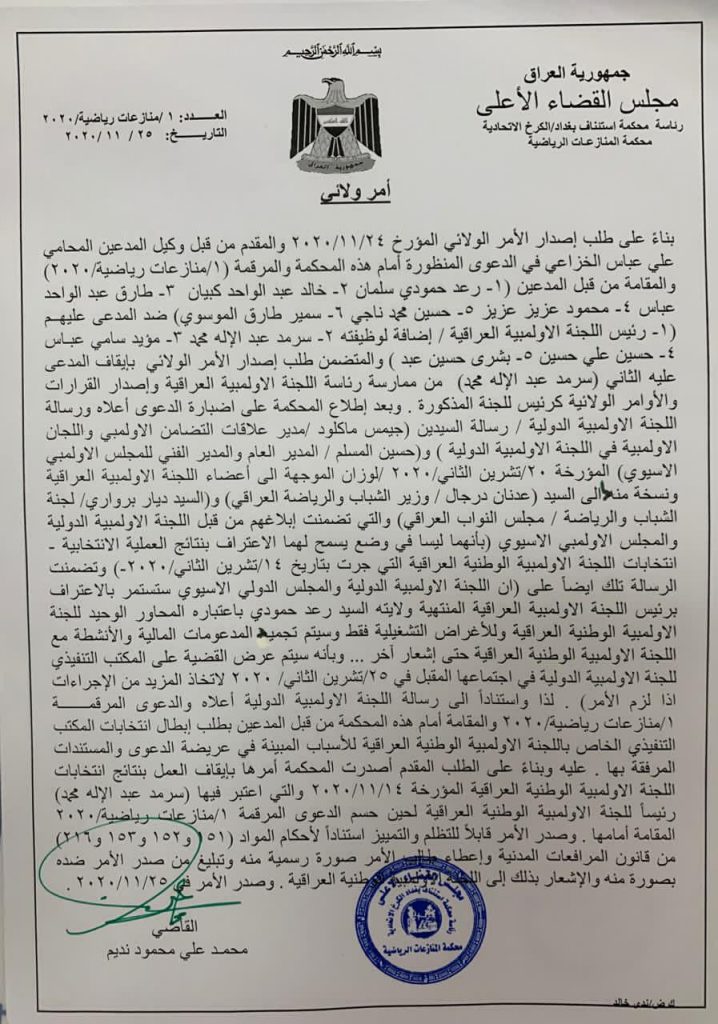 بسم الله الرحمن الرحيم
جمهورية العراق
مجلس القضاء الأعلى
رئاسة محكمة استئناف بغداد/الكرخ الاتحادية
محكمة المنازعات الرياضية
العدد: ١/منازعات رياضية/٢٠٢٠
التاريخ: ٢٥ / ١١ / ٢٠٢٠
جمهورية العراق
أمر ولائي
بناءً على طلب إصدار الأمر الولائي المؤرخ ٢٠٢٠/١١/٢٤ والمقدم من قبل وكيل المدعين المحامي
علي عباس الخزاعي في الدعوى المنظورة أمام هذه المحكمة والمرقمة (١/منازعات رياضية/٢٠٢٠)
والمقامة من قبل المدعين (١- رعد حمودي سلمان ٢- خالد عبد الواحد كبيان ٣- طارق عبد الواحد
عباس ٤- محمود عزيز عزيز ٥- حسين محمد ناجي ٦- سمير طارق الموسوي) ضد المدعى عليهم
(١- رئيس اللجنة الاولمبية العراقية / إضافة لوظيفته ٢- سرمد عبد الإله محمد ٣- مؤيد سامي عباس
٤- حسين علي حسين ٥- بشرى حسين عبد ) والمتضمن طلب إصدار الأمر الولائي بإيقاف المدعى
عليه الثاني (سرمد عبد الإله محمد) من ممارسة رئاسة اللجنة الاولمبية العراقية وإصدار القرارات
والأوامر الولائية كرئيس للجنة المذكورة . وبعد إطلاع المحكمة على اضبارة الدعوى أعلاه ورسالة
اللجنة الاولمبية الدولية / رسالة السيدين (جيمس ماكلود /مدير علاقات التضامن الاولمبي واللجان
الاولمبية في اللجنة الاولمبية الدولية ) و(حسين المسلم / المدير العام والمدير الفني للمجلس الاولمبي
الاسيوي) المؤرخة ٢٠/تشرين الثاني/٢٠٢٠ /لوزان الموجهة الى أعضاء اللجنة الاولمبية العراقية
ونسخة منه الى السيد (عدنان درجال / وزير الشباب والرياضة العراقي) و(السيد ديار برواري/ لجنة
الشباب والرياضة / مجلس النواب العراقي) والتي تضمنت إبلاغهم من قبل اللجنة الاولمبية الدولية
والمجلس الاولمبي الاسيوي (بأنهما ليسا في وضع يسمح لهما الاعتراف بنتائج العملية الانتخابية -
انتخابات اللجنة الاولمبية الوطنية العراقية التي جرت بتاريخ ١٤/تشرين الثاني/٢٠٢٠-) وتضمنت
الرسالة تلك ايضاً على (ان اللجنة الاولمبية الدولية والمجلس الدولي الاسيوي ستستمر بالاعتراف
برئيس اللجنة الاولمبية العراقية المنتهية ولايته السيد رعد حمودي باعتباره المحاور الوحيد للجنة
الاولمبية الوطنية العراقية وللأغراض التشغيلية فقط وسيتم تجميد المدعومات المالية والأنشطة مع
اللجنة الاولمبية الوطنية العراقية حتى إشعار آخر ... وبأنه سيتم عرض القضية على المكتب التنفيذي
للجنة الاولمبية الدولية في اجتماعها المقبل في ٢٥/تشرين الثاني/ ٢٠٢٠ لاتخاذ المزيد من الإجراءات
اذا لزم الأمر) . لذا واستناداً الى رسالة اللجنة الاولمبية الدولية أعلاه والدعوى المرقمة
١/منازعات رياضية/٢٠٢٠ والمقامة أمام هذه المحكمة من قبل المدعين بطلب إبطال انتخابات المكتب
التنفيذي الخاص باللجنة الاولمبية الوطنية العراقية للأسباب المبينة في عريضة الدعوى والمستندات
المرفقة بها . عليه وبناءً على الطلب المقدم أصدرت المحكمة أمرها بإيقاف العمل بنتائج انتخابات
اللجنة الاولمبية الوطنية العراقية المؤرخة ٢٠٢٠/١١/١٤ والتي اعتبر فيها (سرمد عبد الإله محمد)
رئيساً للجنة الاولمبية الوطنية العراقية لحين حسم الدعوى المرقمة ١/منازعات رياضية/٢٠٢٠
المقامة أمامها . وصدر الأمر قابلاً للتظلم والتمييز استناداً لأحكام المواد (١٥١ و١٥٢ و١٥٣ و٢١٦)
من قانون المرافعات المدنية وإعطاء طالب الأمر صورة رسمية منه وتبليغ من صدر الأمر ضده
بصورة منه والإشعار بذلك إلى اللجنة الاولمبية الوطنية العراقية . وصدر الأمر في ٢٠٢٠/١١/٢٥ .
القاضي
محمد علي محمود نديم
مجلس القضاء الأعلى
رئاسة محكمة استئناف بغداد الكرخ الاتحادية
محكمة المنازعات الرياضية
ك.ض/ندى خالد